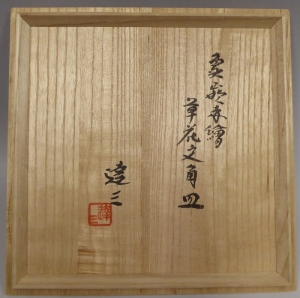 象嵌赤繪
草花文角皿
達三